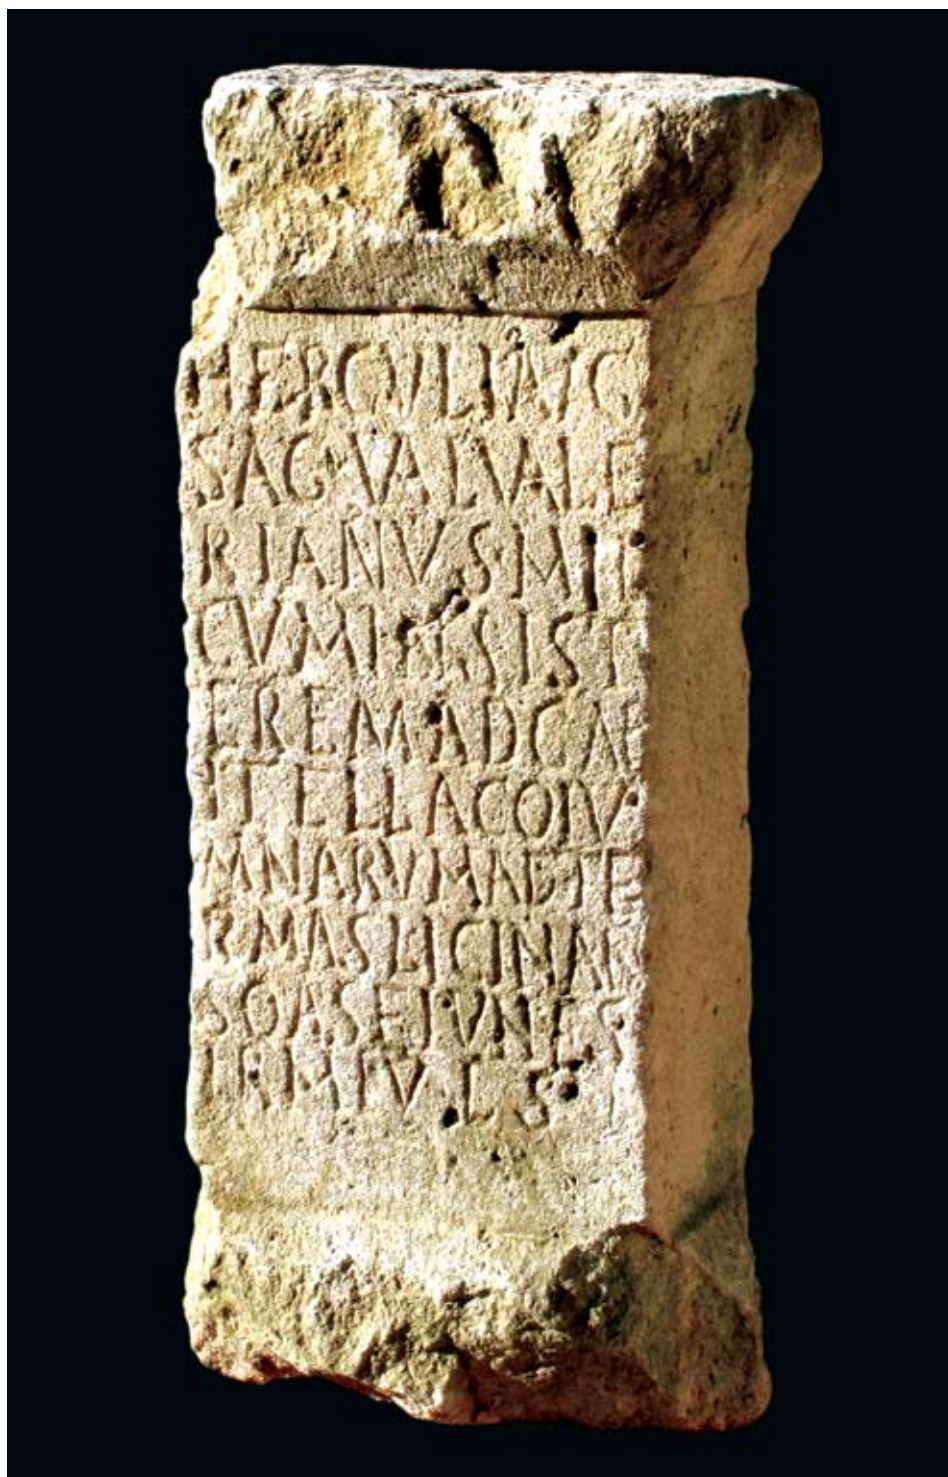 HERCVLI AVG
SAC VAL VALE
RIANVS MIL
CVM INSIST
EREM AD CA
PITELLA COLV
MNARVM AD TE
RMAS LICINIAN